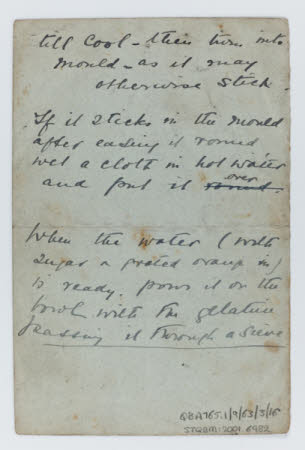 till cool - then turn into
mould - as it may
otherwise stick.
If it sticks in the mould
after easing it round
wet a cloth in hot water
and put it over round.
When the water (with
sugar & grated orange in)
is ready. pour it on the
bowl with the gelatine
passing it through a sieve
QBA765.1/9/63/3/16
STQBM:2001.6982